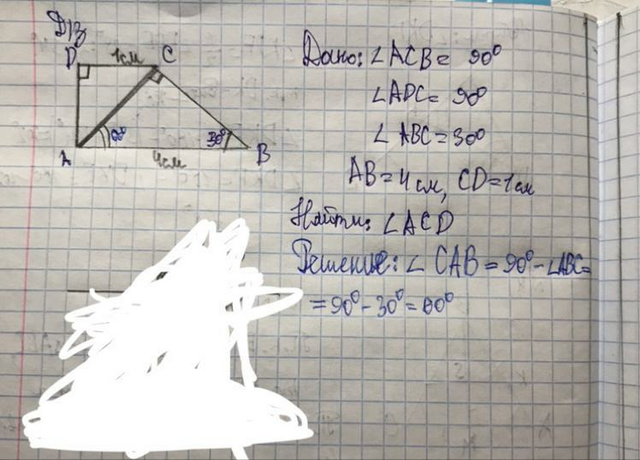 Д/з
D 1см C
60° 30°
A 4см B
Дано: ∠ACB = 90°
∠ADC = 90°
∠ABC = 30°
AB = 4см, CD = 1см
Найти: ∠ACD
Решение: ∠CAB = 90° - ∠ABC =
= 90° - 30° = 60°